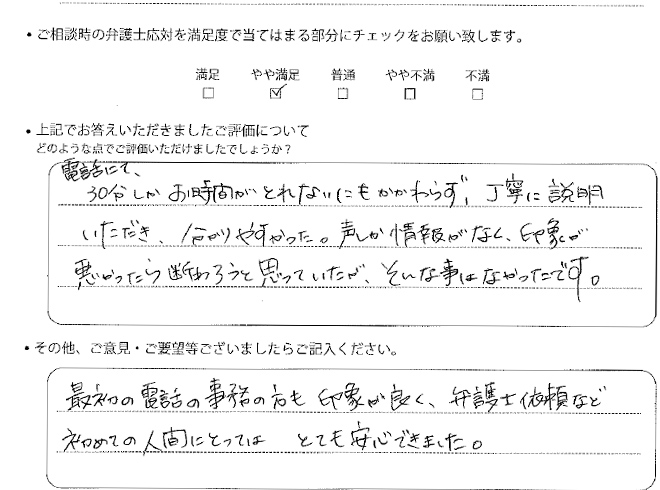 ・ご相談時の弁護士応対を満足度で当てはまる部分にチェックをお願い致します。
満足 やや満足 普通 やや不満 不満
□ ☑ □ □ □
・上記でお答えいただきましたご評価について
どのような点でご評価いただけましたでしょうか?
電話にて、
30分しかお時間がとれないにもかかわらず、丁寧に説明
いただき、分かりやすかった。声しか情報がなく、印象が
悪かったら断わろうと思っていたが、そんな事はなかったです。
・その他、ご意見・ご要望等ございましたらご記入ください。
最初の電話の事務の方も印象が良く、弁護士依頼など
初めての人間にとっては とても安心できました。